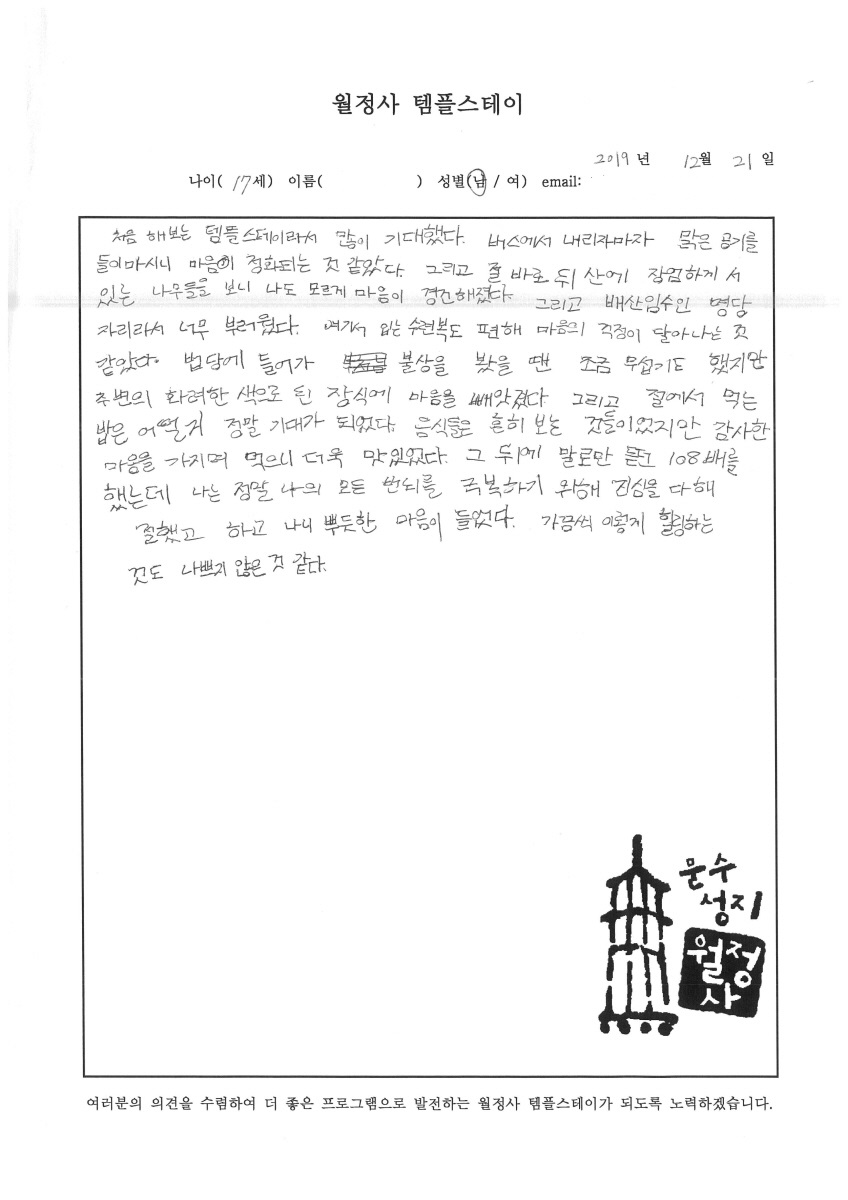 월정사 템플스테이
2019 년 12월 21 일
나이( 17세) 이름( ) 성별(남 / 여) email:
처음 해보는 템플스테이라서 많이 기대했다. 버스에서 내리자마자 맑은 공기를
들이마시니 마음이 정화되는 것 같았다. 그리고 절 바로 뒤 산에 장엄하게 서
있는 나무들을 보니 나도 모르게 마음이 경건해졌다. 그리고 배산임수인 명당
자리라서 너무 부러웠다. 여기서 입는 수련복도 편해 마음의 걱정이 달아나는 것
같았다. 법당에 들어가 불상을 봤을 땐 조금 무섭기도 했지만
주변의 화려한 색으로 된 장식에 마음을 빼앗겼다. 그리고 절에서 먹는
밥은 어떨거 정말 기대가 되었다. 음식들은 흔히 보는 것들이었지만 감사한
마음을 가지며 먹으니 더욱 맛있었다. 그 뒤에 말로만 듣던 108배를
했는데 나는 정말 나의 모든 번뇌를 극복하기 위해 진심을 다해
절했고 하고 나니 뿌듯한 마음이 들었다. 가끔씩 이렇게 힐링하는
것도 나쁘지 않은 것 같다.
문수
성지
월정
사
여러분의 의견을 수렴하여 더 좋은 프로그램으로 발전하는 월정사 템플스테이가 되도록 노력하겠습니다.